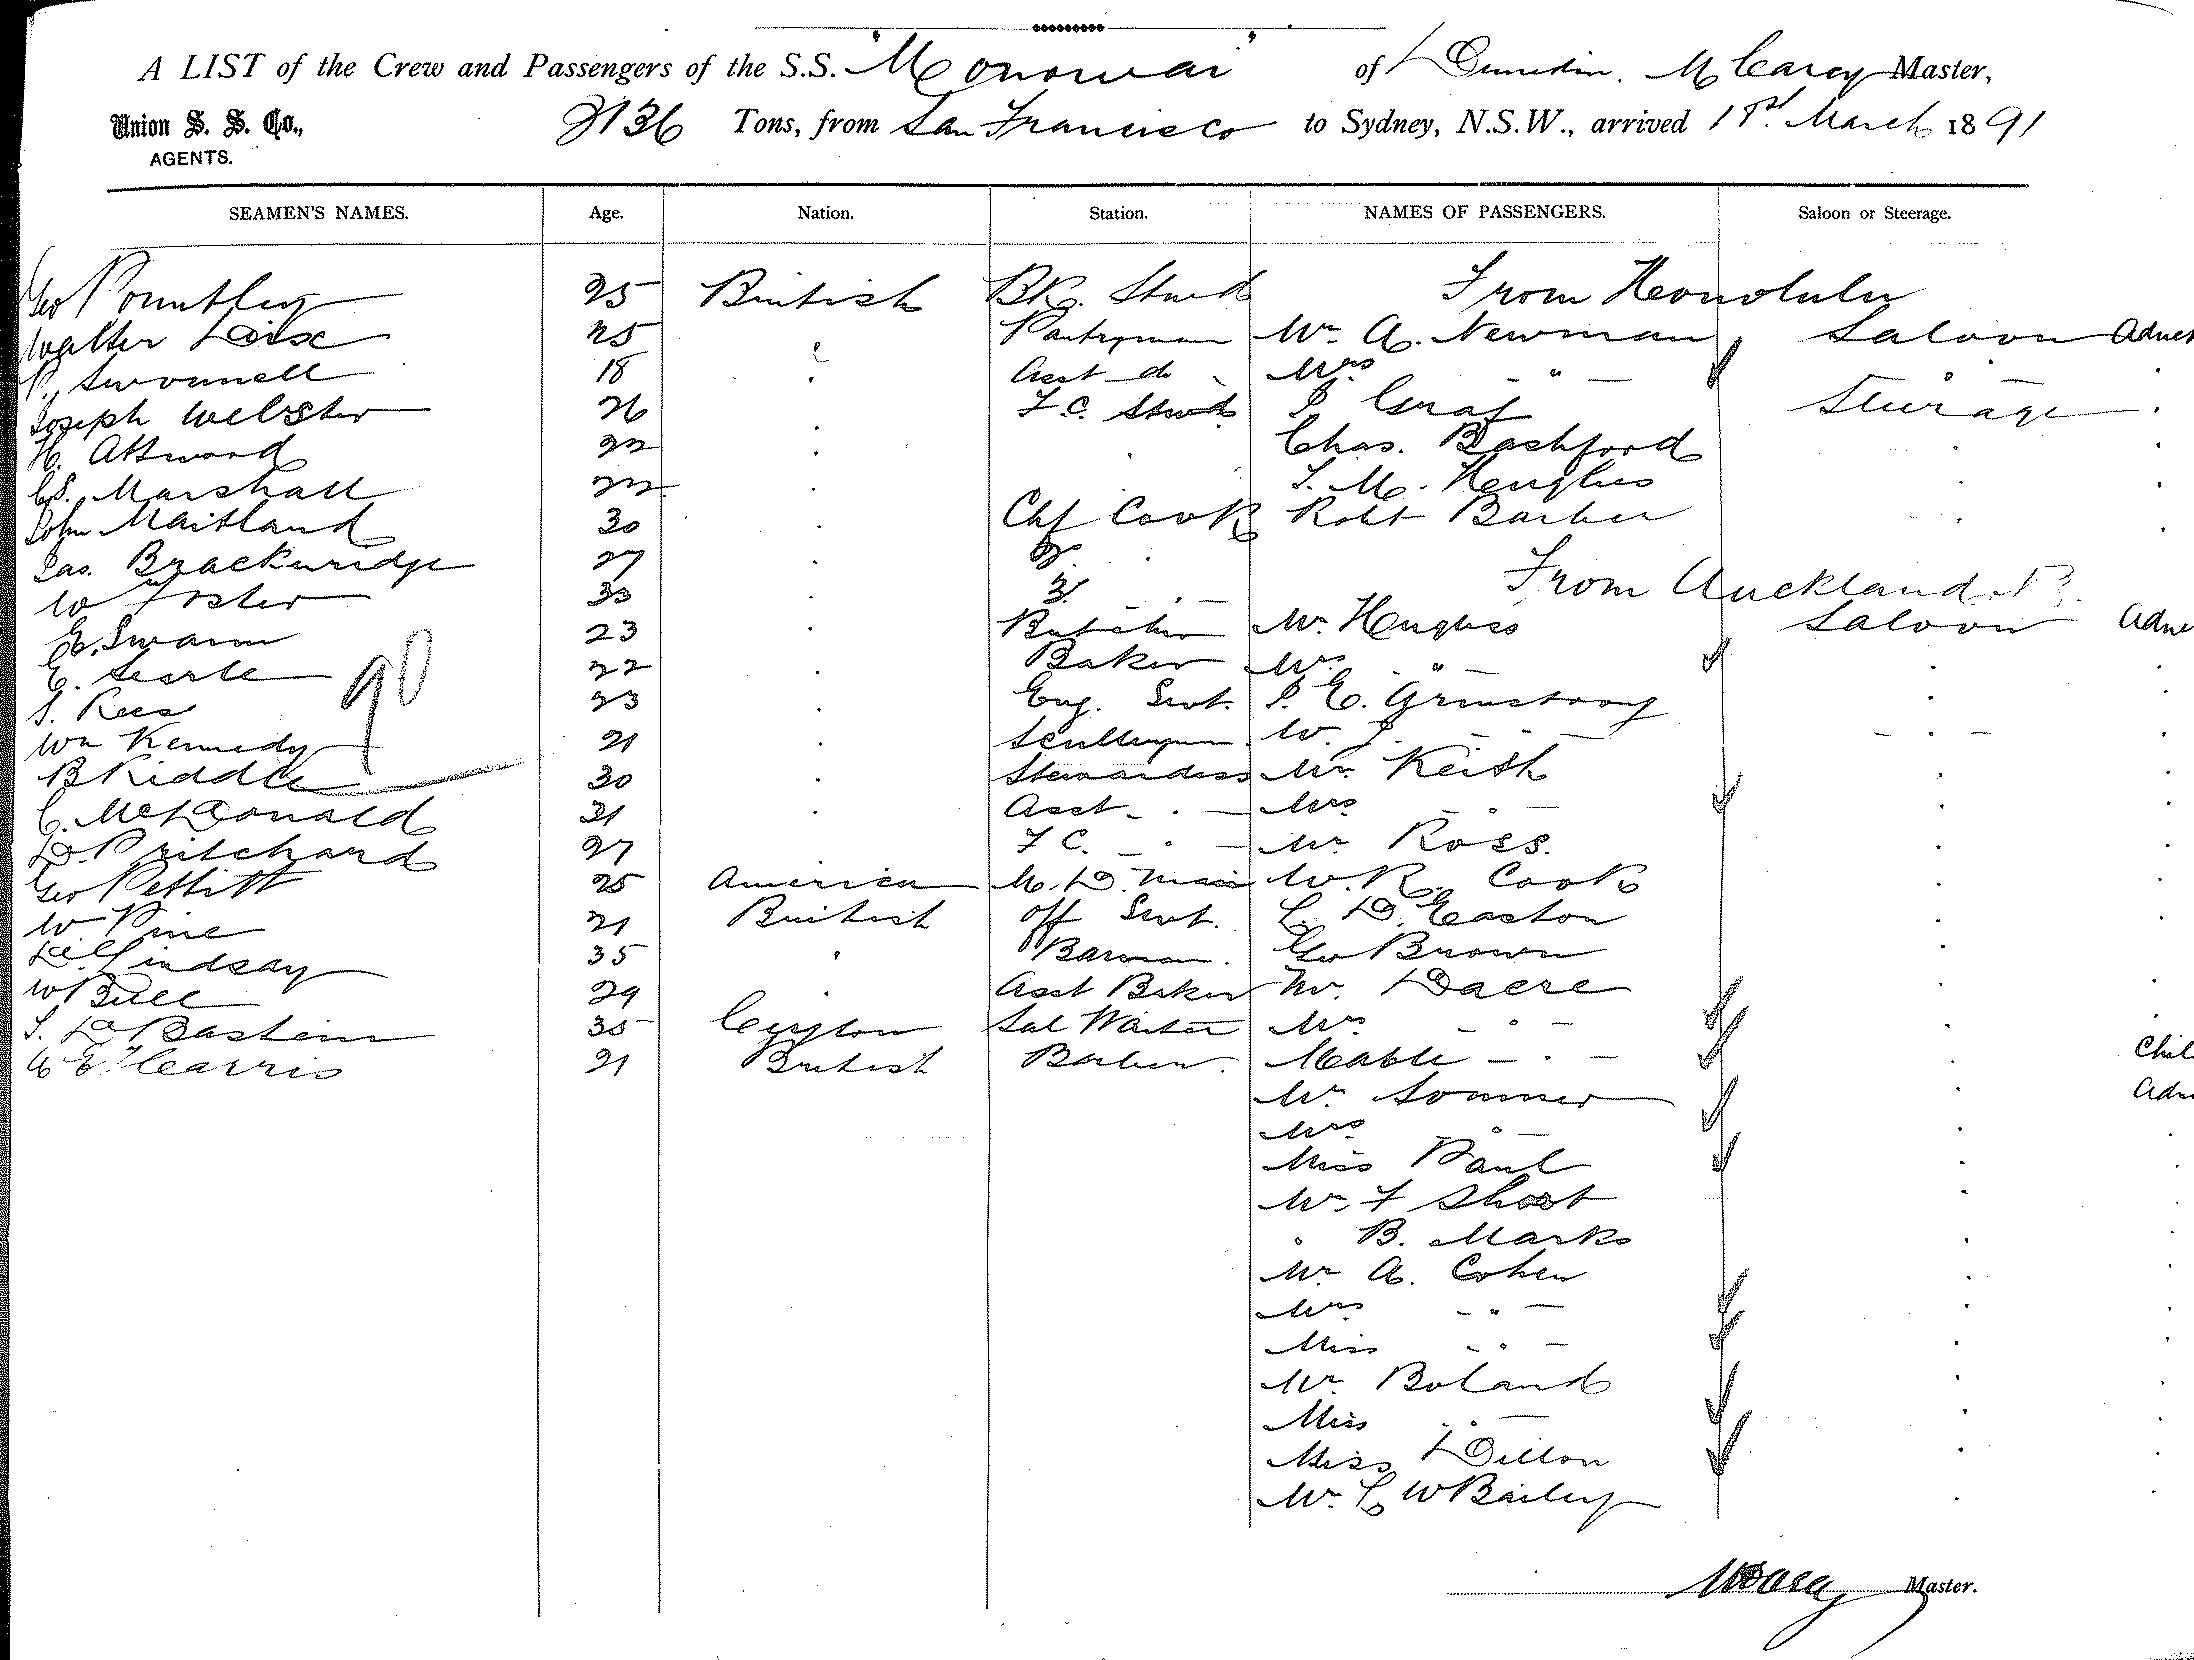 A LIST of the Crew and Passengers of the S.S. "Monowai" of Dunedin, M Carey Master,
Union S. S. Co., AGENTS. 2136 Tons, from San Francisco to Sydney, N.S.W., arrived 1st March 1891
SEAMEN'S NAMES. Age. Nation. Station. NAMES OF PASSENGERS. Saloon or Steerage.
Geo Pountley 25 British Bkg. Stwd From Honolulu
Walter 25 " Pantryman Mr A. Newman Saloon
P. Swonnell 18 " Asst do Mrs " "
Joseph Webster 26 F.C. Stwd. J. Graf Steerage
H. Attwood 22 " " Chas. Bashford "
Marshall 22 " " J. M. Hughes "
John Maitland 30 " Chf Cook Robt Barber "
Jas. Brackenridge 27 " 2 "
W Foster 33 " 3 " From Auckland N.Z.
E. Swann 23 " Butcher Mr. Hughes Saloon
E. Searle 22 " Baker Mrs " "
J. Rees 23 " Eng. Servt. J. E. Armstrong "
Wm Kennedy 21 " Sculleryman W. J. " "
B Kiddle 30 " Stewardess Mr. Keith "
C. McDonald 31 " Asst " Mrs " "
D. Pritchard 27 F C. " Mr Ross. "
Geo Pettitt 25 America M. D. Man W. R. Cook "
W Pine 21 British Off Servt. C. D. Easton "
Lindsay 35 " Barman. Geo Brown "
W Bull 29 " Asst Baker Mr. Dacre "
J. De Bastein 35 Ceylon Sal Waiter Mrs " "
E. Harris 21 British Barber. Mable " "
Mr. Sommer "
Mrs " "
Miss Paul "
Mr. F Short "
" B. Marks "
Mr A. Cohen "
Mrs " "
Miss " "
Mr. Boland "
Miss " "
Miss Dillon "
Mr. C W Bailey "
90
M Carey Master.